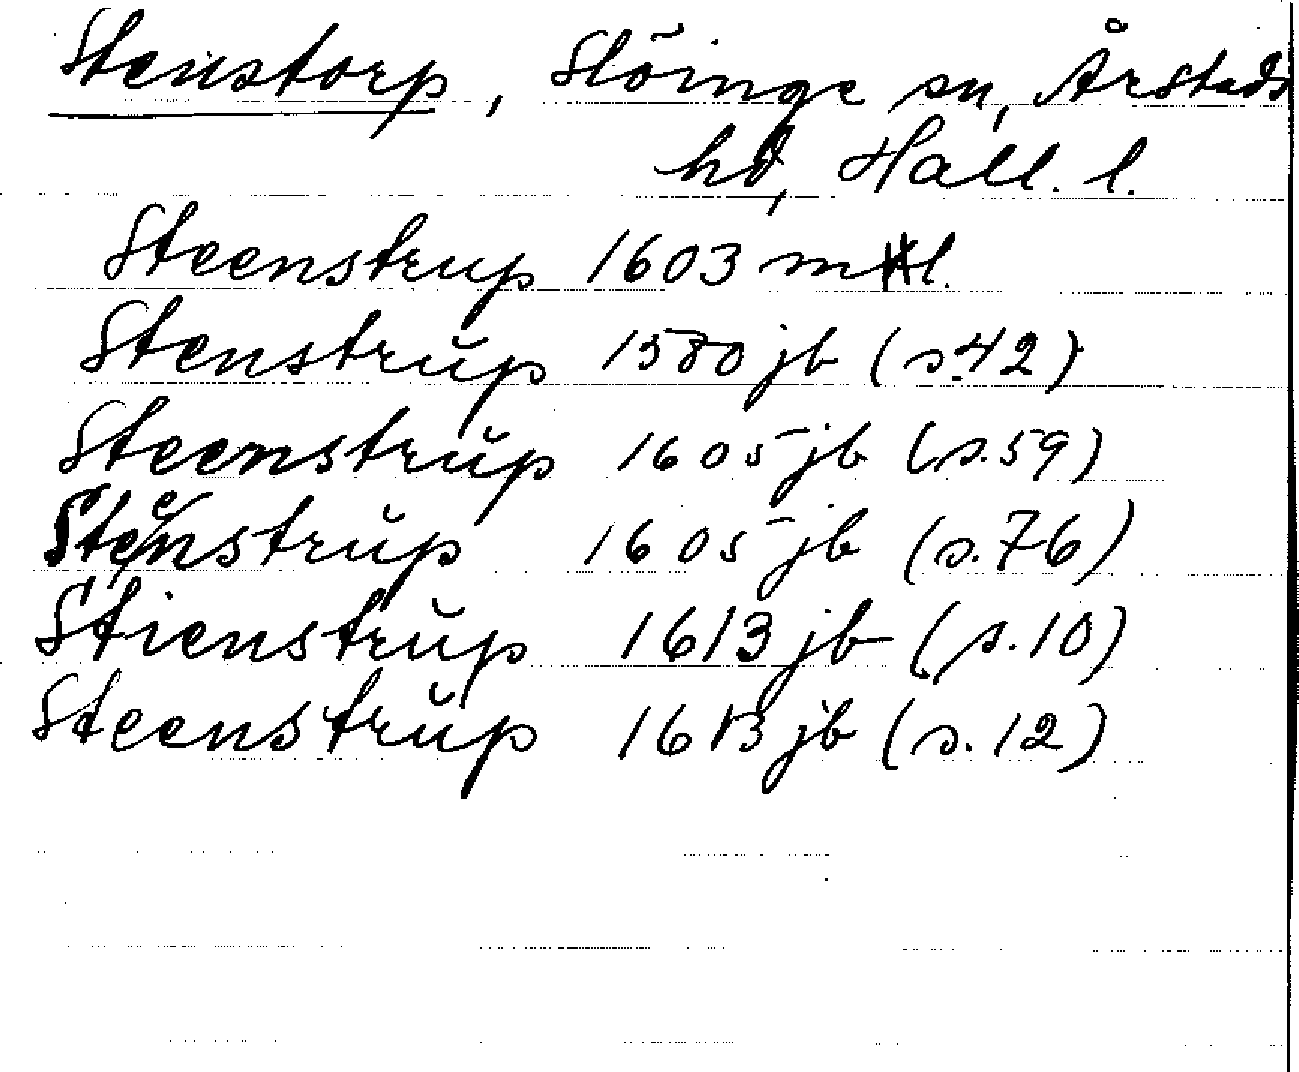 Stenstorp, Slöinge sn, Årstads
hd, Hall. l.
Steenstrup 1603 mtl.
Stenstrŭp 1580 jb (s.42)
Steenstrŭp 1605 jb (s.59)
Stenstrŭp 1605 jb (s.76)
Stienstrŭp 1613 jb (s.10)
Steenstrŭp 1613 jb (s.12)